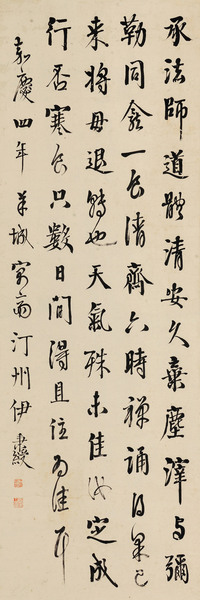 承法師道體清安久棄塵滓与彌
勒同龕一食清齋六時禪誦得果已
來將毋退轉也天氣殊未佳汝定成
行否寒食只數日間得且住為佳耳
嘉慶四年羊城寓齋汀州伊秉綬